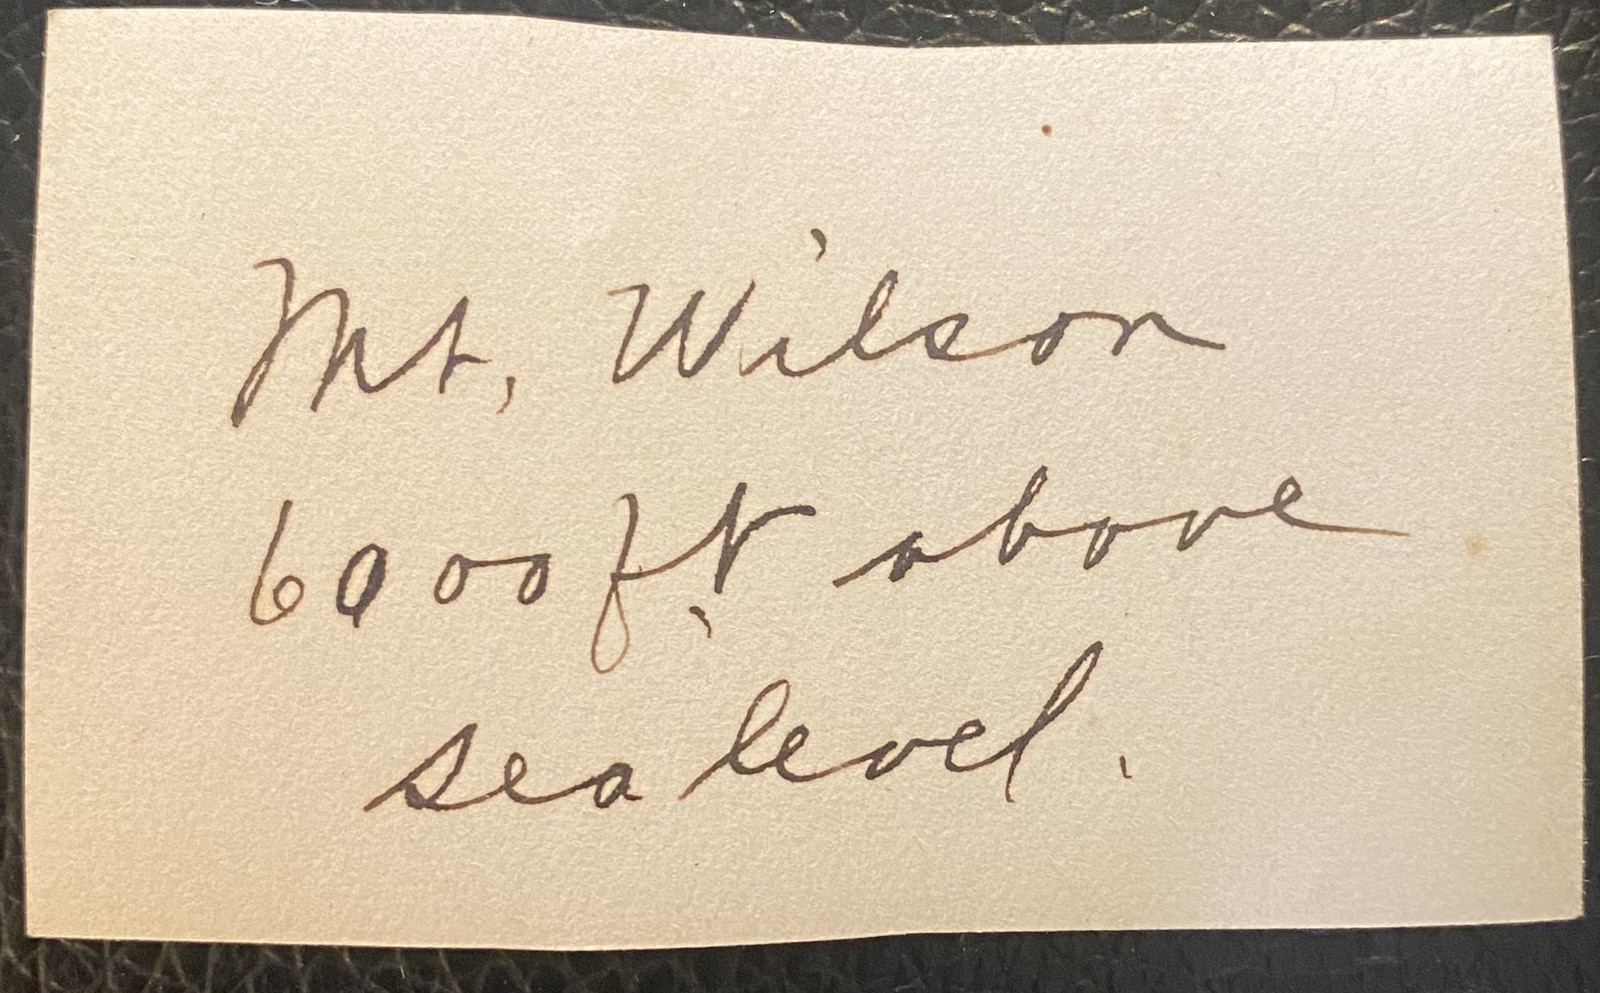 Mt, Wilson
6000 ft. above
sea level.